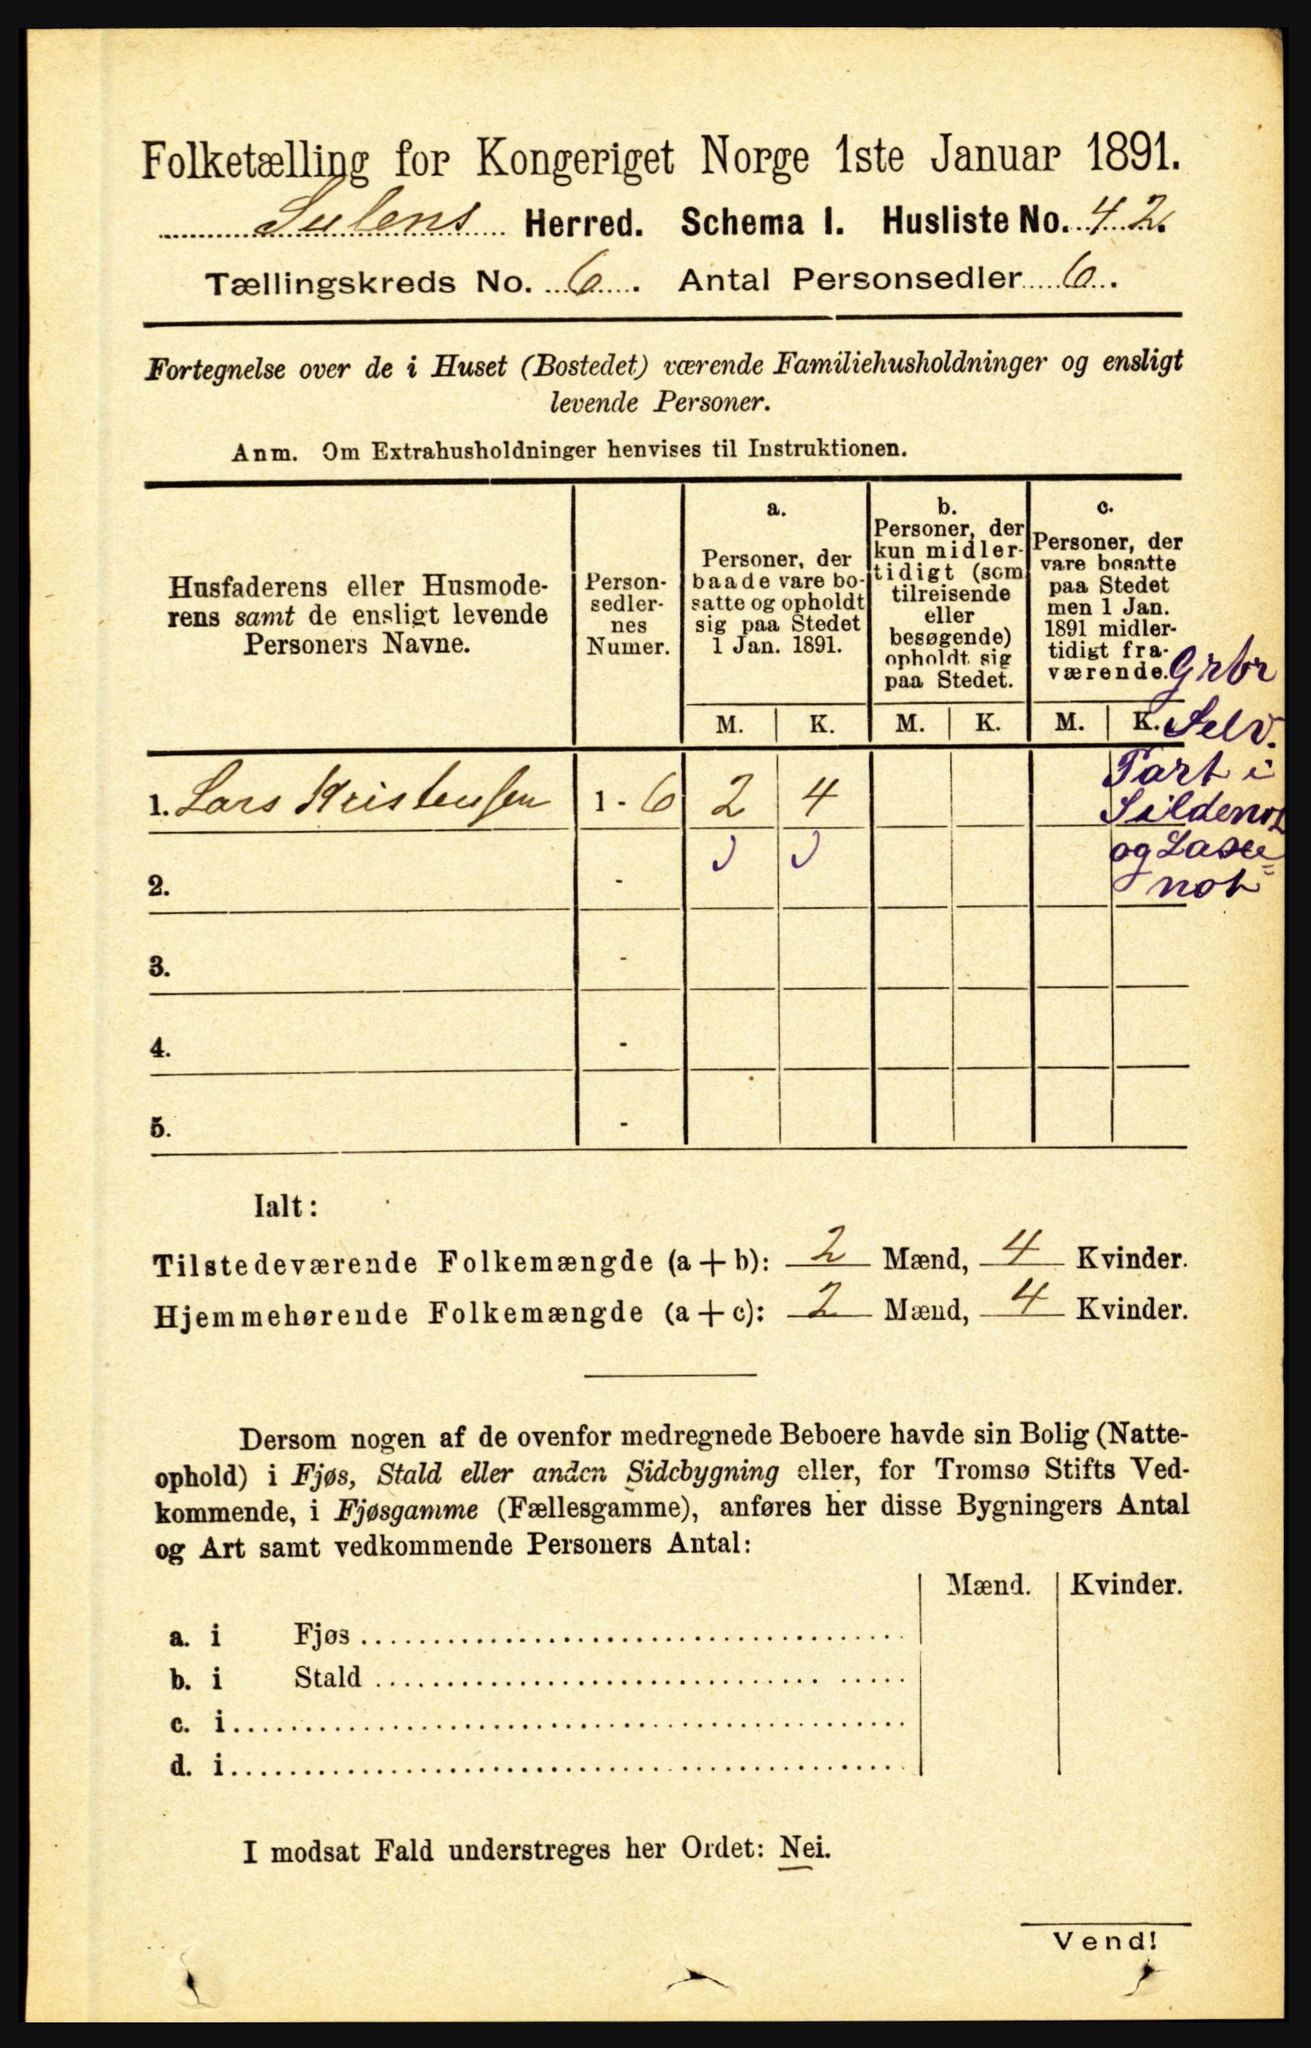 Folketælling for Kongeriget Norge 1ste Januar 1891.
Sulens Herred. Schema I. Husliste No. 42.
Tællingskreds No. 6. Antal Personsedler 6.
Fortegnelse over de i Huset (Bostedet) værende Familiehusholdninger og ensligt
levende Personer.
Anm. Om Extrahusholdninger henvises til Instruktionen.
Husfaderens eller Husmode-
rens samt de ensligt levende
Personers Navne.
Person-
sedler-
nes
Numer.
a.
Personer, der
baade vare bo-
satte og opholdt
sig paa Stedet
1 Jan. 1891.
b.
Personer, der
kun midler-
tidigt (som
tilreisende
eller
besøgende)
opholdt sig
paa Stedet.
c.
Personer, der
vare bosatte
paa Stedet
men 1 Jan.
1891 midler-
tidigt fra-
værende.
M. K. M. K. M. K.
Grbr
Selv.
Part i
Sildenot
og Laxe=
not
1. Lars Kristensen 1 - 6 2 4
2. -
3. -
4. -
5. -
Ialt:
Tilstedeværende Folkemængde (a + b): 2 Mænd, 4 Kvinder.
Hjemmehørende Folkemængde (a + c): 2 Mænd, 4 Kvinder.
Dersom nogen af de ovenfor medregnede Beboere havde sin Bolig (Natte-
ophold) i Fjøs, Stald eller anden Sidebygning eller, for Tromsø Stifts Ved-
kommende, i Fjøsgamme (Fællesgamme), anføres her disse Bygningers Antal
og Art samt vedkommende Personers Antal:
Mænd. Kvinder.
a. i Fjøs
b. i Stald
c. i
d. i
I modsat Fald understreges her Ordet: Nei.
Vend!